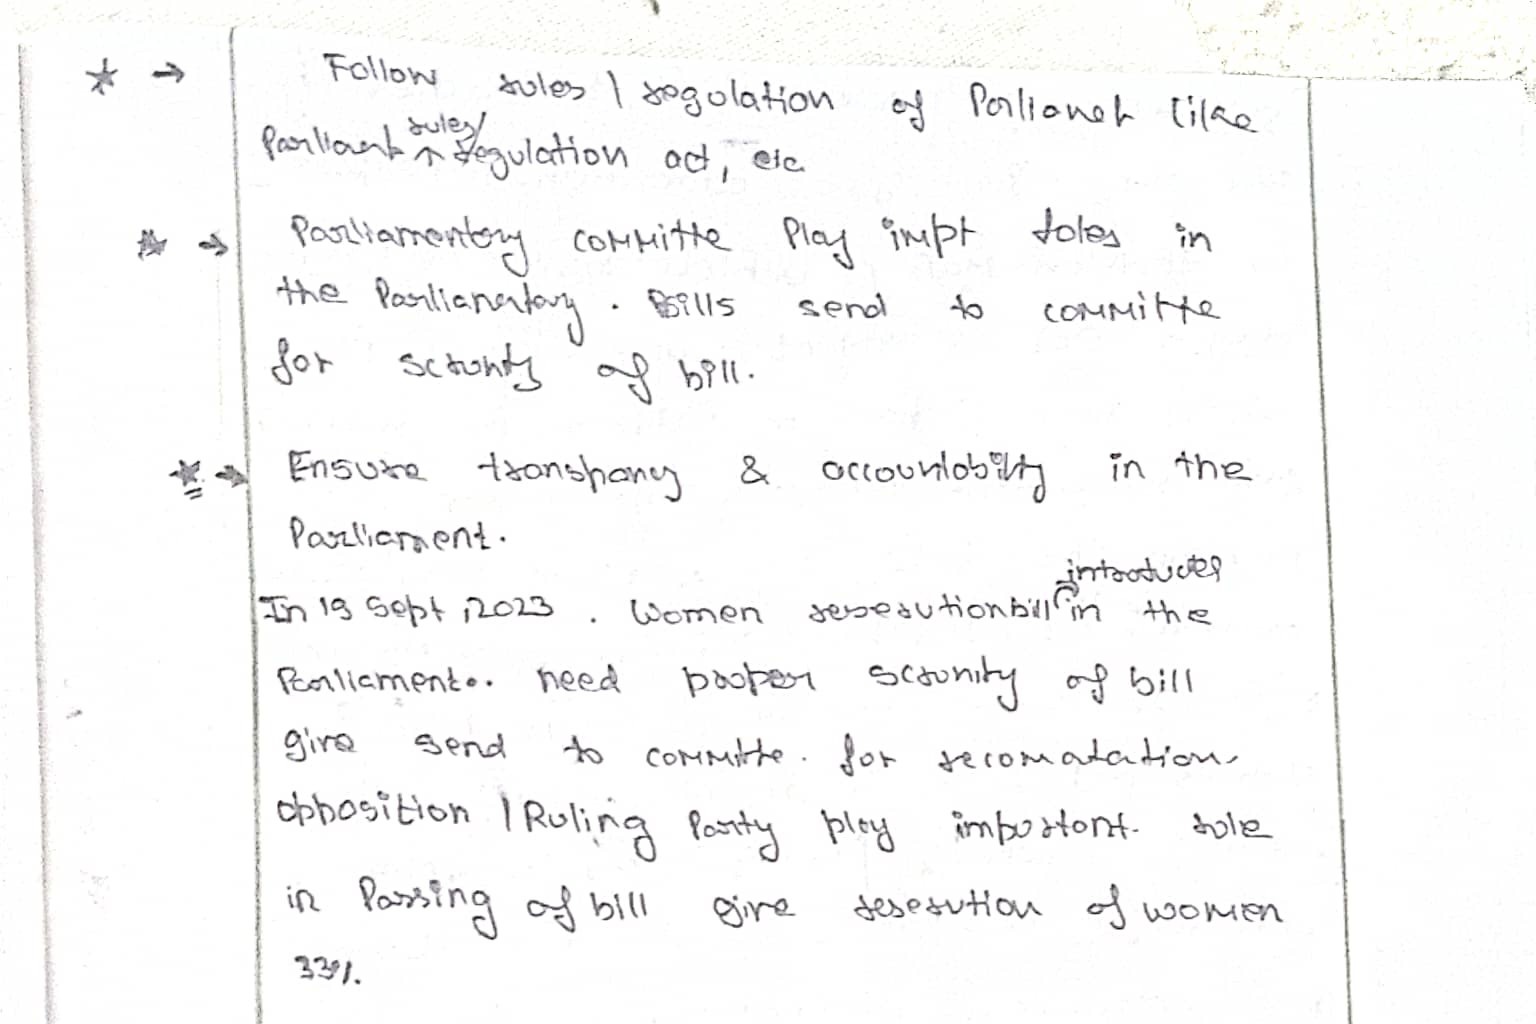 ★ → Follow rules / regulation of Parlianet like
Parliant rules/ regulation act, etc
★ → Parliamentory committe Play impt roles in
the Parlianentary. Bills send to committe
for scrunty of bill.
★ → Ensure transpancy & accountobility in the
Parliament.
introduced
In 19 Sept, 2023. Women reserutionbill in the
Parliamente. need proper scrunity of bill
give send to committe. for recomadation
opposition / Ruling Party play important role
in Passing of bill give reserution of women
33%.